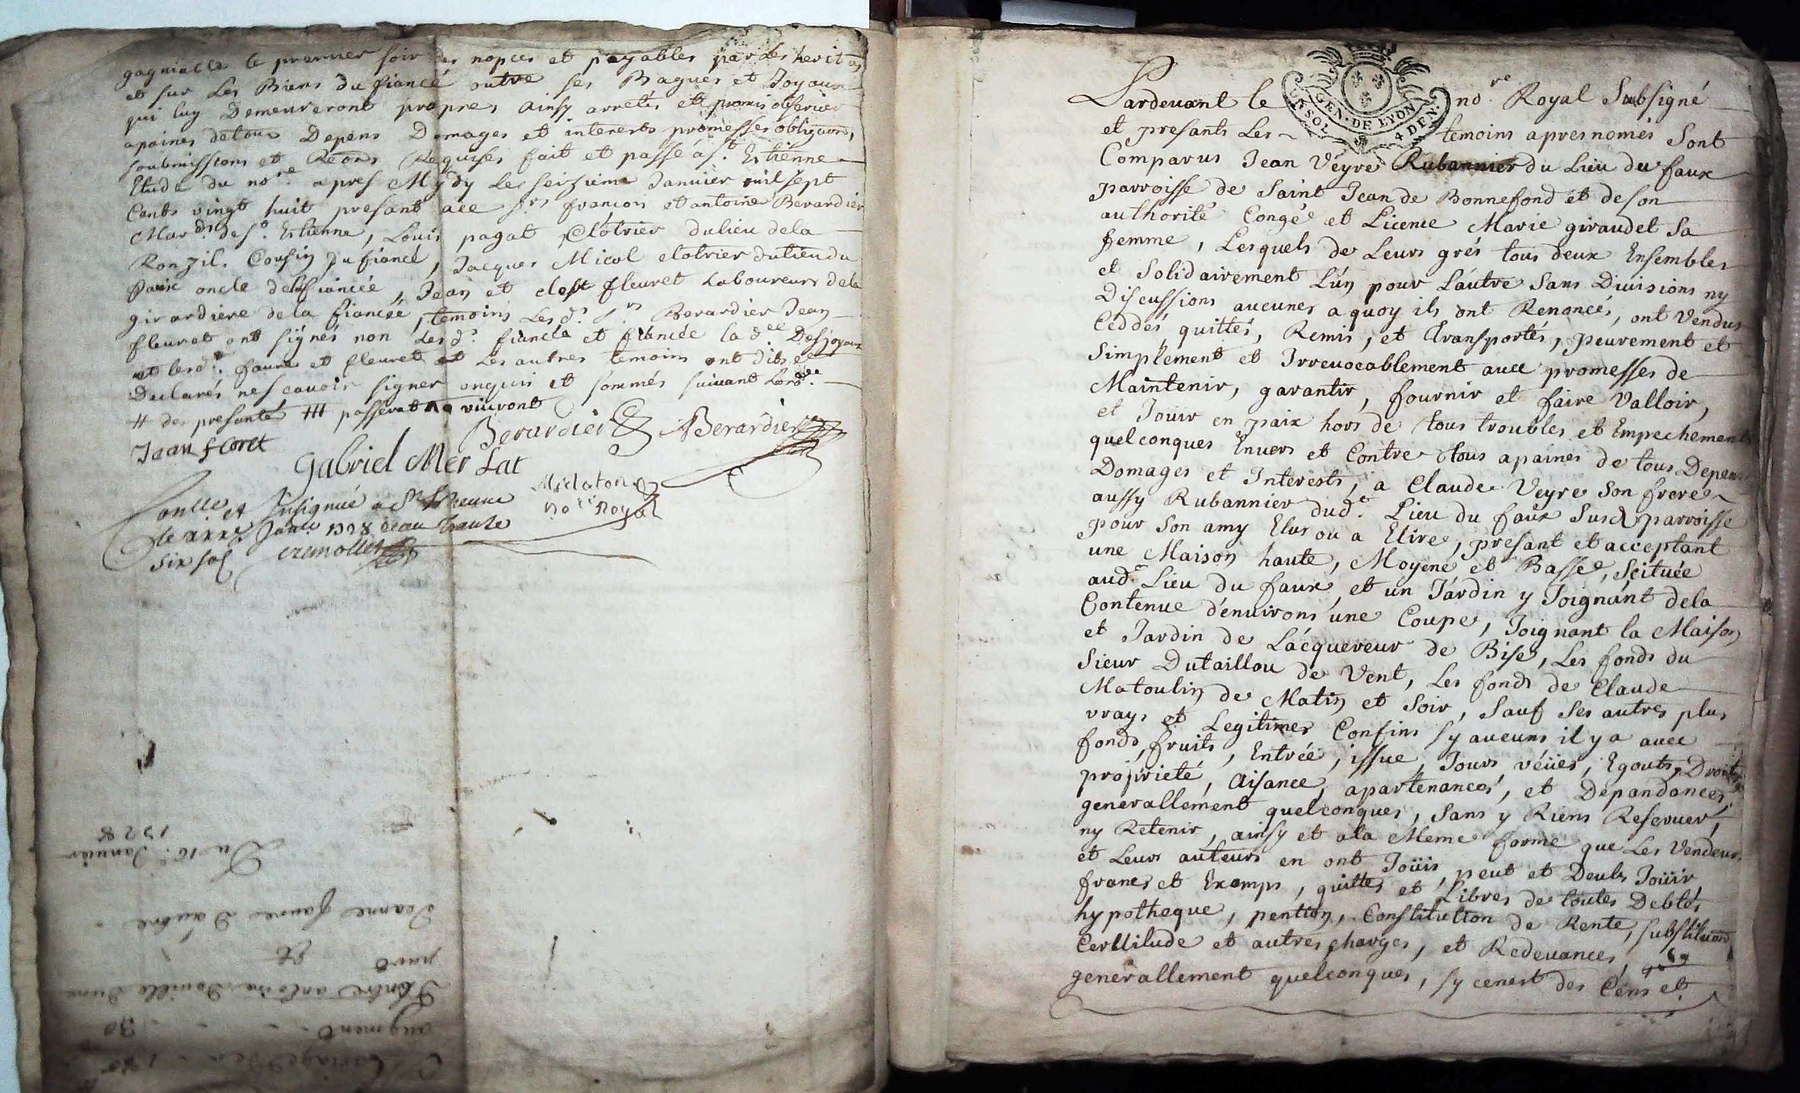 gagniable le premier soir des nopces et payables par les herit
et sur Les Biens du fiancé outre ses Bagues et Joyaux
qui luy Demeureront propres ainsy arretés et promis observer
apaines detous Depens Domages et interests promesses obligaons,
soubmissions et Reaons Requises fait et passé a St. Estienne
Etude du nore. apres Mydy le seizieme Janvier mil sept
Cents vingt huit presant acc srs. françois et antoine Berardier
Mards. de St. Estienne, Louis pagat Clotrier du lieu dela
Ronzil. Cousin du fiancé, Jacques Micol clotrier du lieu du
faux oncle de la fiancée, Jean et fleuret Laboureurs dela
girardiere de la fiancée, temoins Les ds. srs Berardier Jean
fleuret ont signés non Les ds. fiancés et fiancée la dlle. Desjoyaux
et les ds. faure et fleuret et Les autres temoins ont dits et
Declarés ne scavoir signer enquis et sommés suivant Lordce.
# des presantes ### passerat viuront
Jean floret
Berardier ABerardier
Gabriel Mer Lat
Midaton
no.re Royal
Conlle et Insignué a St Estienne
le Janv 1728
six sols
Du 16e. Janvier
1728
Jeanne faure D'autre
part
et
Entre antoine D'une
augment 30
Mariage de
Pardevant le nore. Royal Subsigné
GEN. DE LYON
UN SOL 4 DEN.
et presants Les temoins apres només Sont
Comparus Jean Veyre Rubannier du Lieu du faux
parroisse de Saint Jean de Bonnefond et de son
authorité Congé et Licence Marie giraudet Sa
femme, Lesquels de Leurs grés tous deux Ensembles
et Solidairement L'un pour L'autre Sans Divisions ny
Discussions aucunes a quoy ils ont Renoncés, ont Vendus
Ceddés quittés, Remis, et Transportés, peurement et
Simplement et Irrevocablement avec promesses de
Maintenir, garantir, fournir et faire Valloir,
et Jouir en paix hors de tous troubles et Empechements
quelconques Envers et Contre tous apaines de tous Depens
Domages et Interests, a Claude Veyre Son frere
aussy Rubannier dud. Lieu du faux Susd parroisse
pour Son amy Elus ou a Elire, presant et acceptant
une Maison haute, Moyene et Basse, Scituée
aud. Lieu du faux, et un Jardin y Joignant dela
Contenue d'environs une Coupe, Joignant la Maison
et Jardin de L'acquereur de Bise, Les fonds du
Sieur Dutaillou de Vent, Les fonds de Claude
Matoulin de Matin et Soir, Sauf Ses autres plus
vrays et Legitimes Confins sy aucuns il y a avec
fonds, fruits, Entrée, issue, Jours véües, Egouts, Droits
proprieté, aisance, apartenances, et Dépandances
generallement quelconques, Sans y Riens Reserver,
ny Retenir, ainsy et ala Meme forme que Les Vendeurs
et Leurs auteurs en ont Joüis, peut et Deubs Joüir
francs et Exemps, quittes et Libres de toutes Debtes
hypotheque, pention, Constitution de Rente, substituon
Certitude et autres charges, et Redevances,
generallement quelconques, sy cenest des Cens et